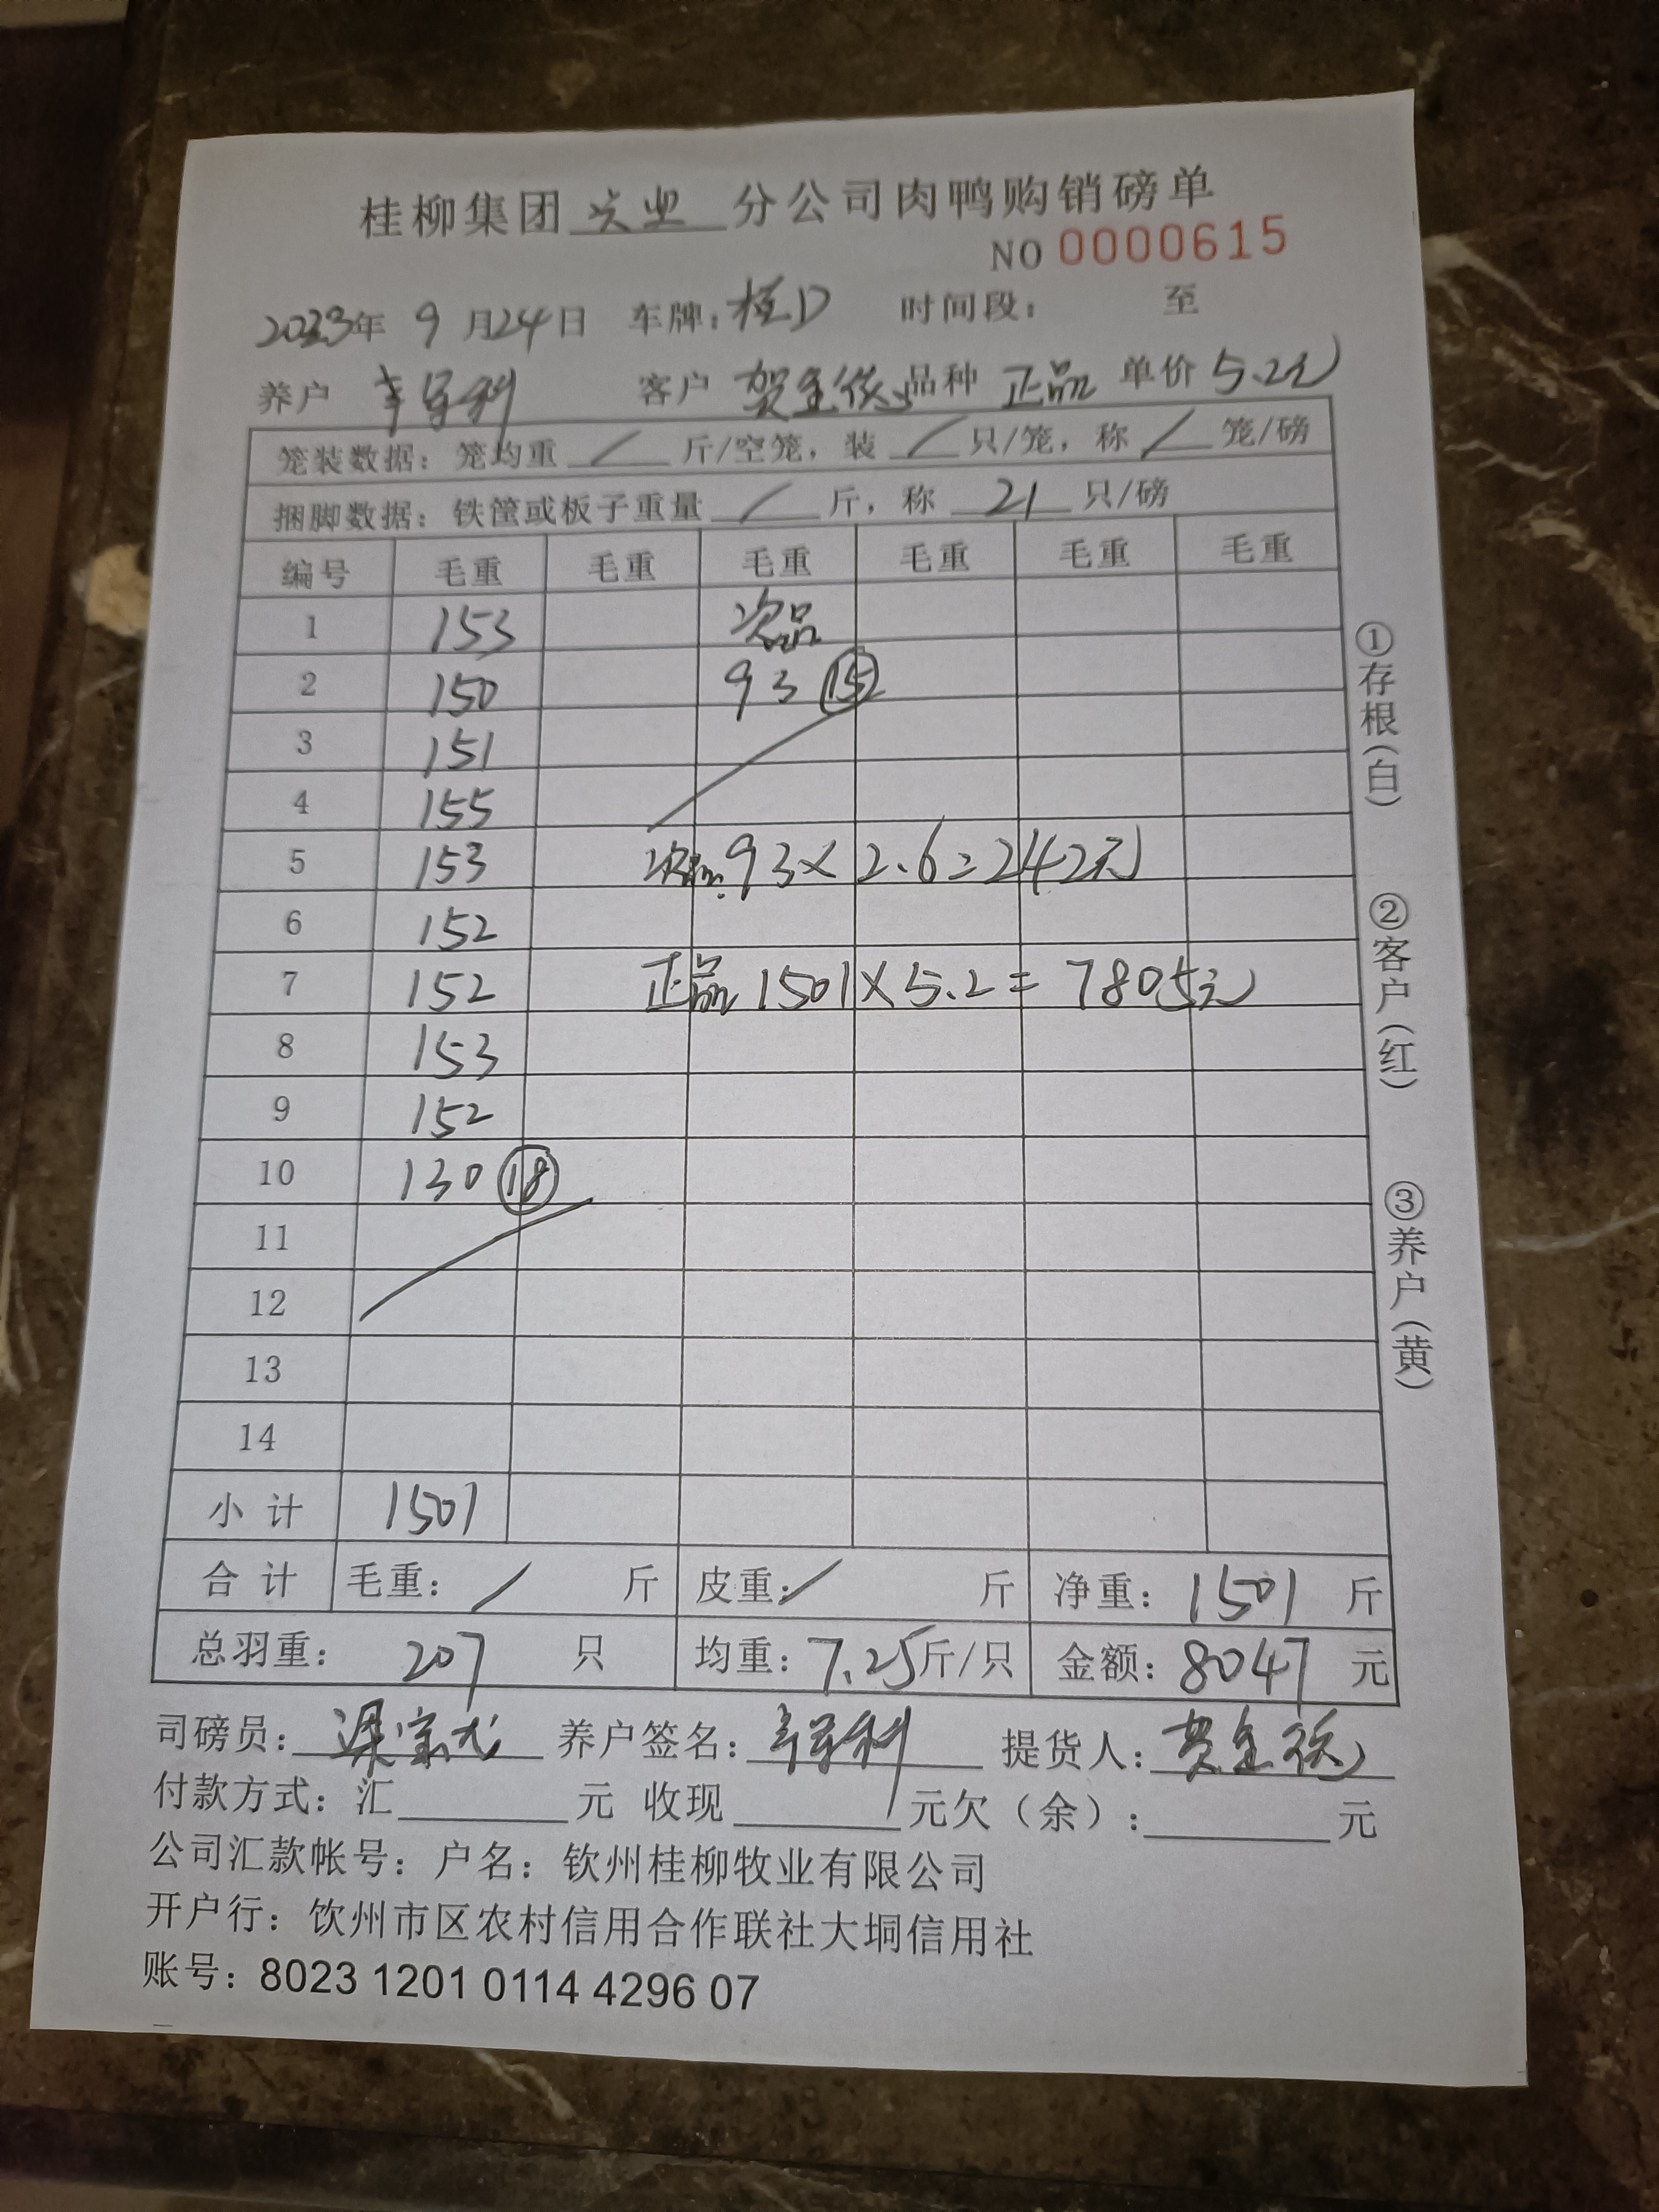 桂柳集团兴业分公司肉鸭购销磅单
NO 0000615
2023年 9月24日 车牌:桂D 时间段: 至
养户 客户 贺金 品种 正品 单价 5.2元
笼装数据: 笼均重 / 斤/空笼, 装 / 只/笼, 称 / 笼/磅
捆脚数据: 铁筐或板子重量 / 斤, 称 21 只/磅
编号 毛重 毛重 毛重 毛重 毛重 毛重
1 153 次品
2 150 93 15
3 151
4 155
5 153 次品:93×2.6=242元
6 152
7 152 正品 1501×5.2=7805元
8 153
9 152
10 130 18
11
12
13
14
小计 1501
合计 毛重: / 斤 皮重: / 斤 净重: 1501 斤
总羽重: 207 只 均重: 7.25斤/只 金额: 8047 元
司磅员: 养户签名: 提货人:
付款方式: 汇 元 收现 元欠(余): 元
公司汇款帐号: 户名: 钦州桂柳牧业有限公司
开户行: 饮州市区农村信用合作联社大垌信用社
账号: 8023 1201 0114 4296 07
①存根(白)
②客户(红)
③养户(黄)